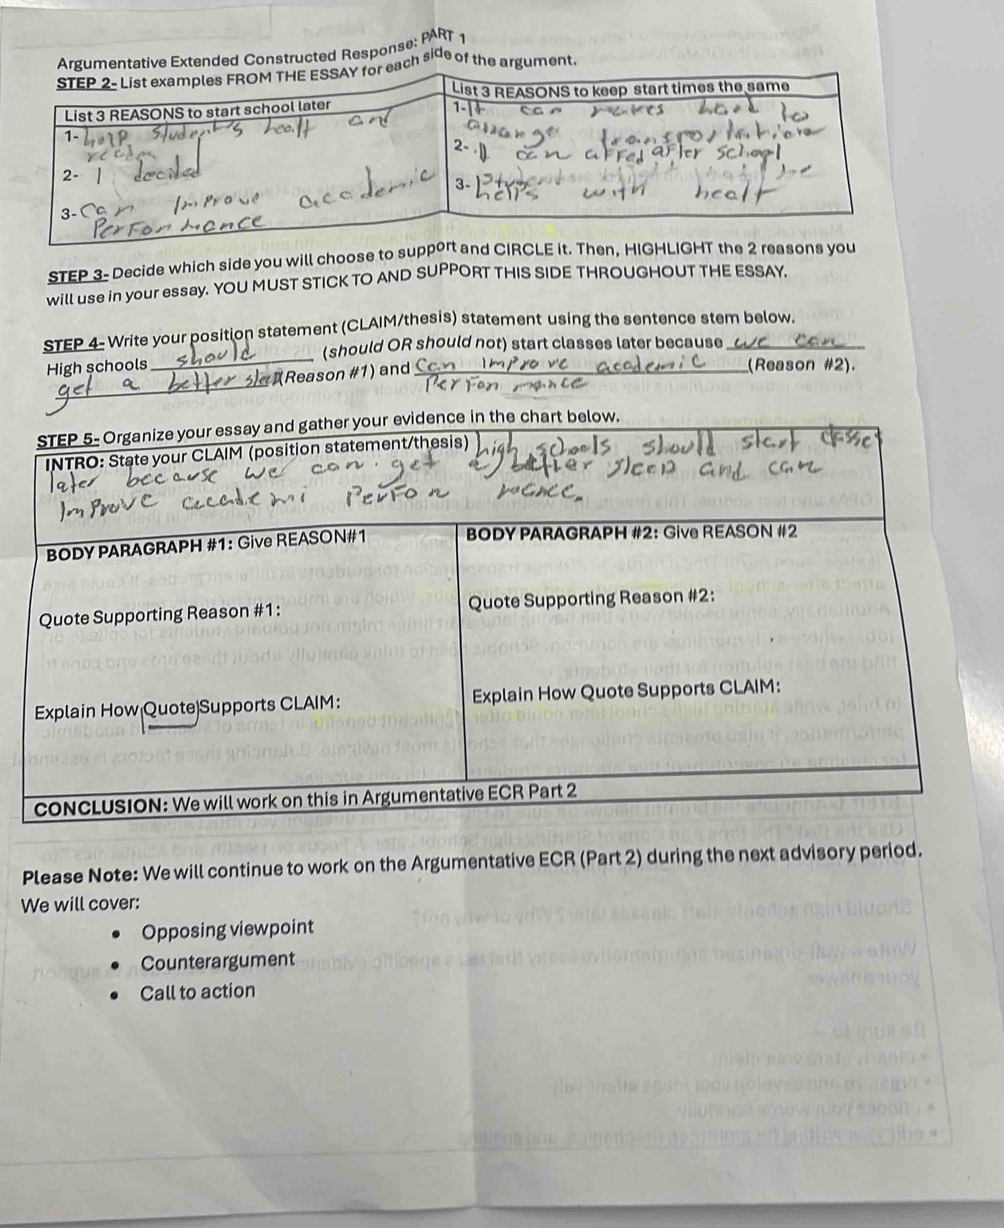 Argumentative Extended Constructed Response: PART 1
STEP 2- List examples FROM THE ESSAY for each side of the argument.
List 3 REASONS to start school later
1- help student's healt and
2- I decided
3- Can Improve academic
Perfor mance
List 3 REASONS to keep start times the same
1- It can makes hard to
arrange transportation
2- . It can affred after school
3- helps with healt
STEP 3- Decide which side you will choose to support and CIRCLE it. Then, HIGHLIGHT the 2 reasons you
will use in your essay. YOU MUST STICK TO AND SUPPORT THIS SIDE THROUGHOUT THE ESSAY.
STEP 4- Write your position statement (CLAIM/thesis) statement using the sentence stem below.
High schools should (should OR should not) start classes later because we can
get a better sleep (Reason #1) and Can improve academic (Reason #2).
Perfon mance
STEP 5- Organize your essay and gather your evidence in the chart below.
INTRO: State your CLAIM (position statement/thesis) high schools should start classes
later because we can. get a better sleep and can
Improve academi Perfon mence.
BODY PARAGRAPH #1: Give REASON#1
Quote Supporting Reason #1:
Explain How Quote Supports CLAIM:
BODY PARAGRAPH #2: Give REASON #2
Quote Supporting Reason #2:
Explain How Quote Supports CLAIM:
CONCLUSION: We will work on this in Argumentative ECR Part 2
Please Note: We will continue to work on the Argumentative ECR (Part 2) during the next advisory period.
We will cover:
• Opposing viewpoint
• Counterargument
• Call to action